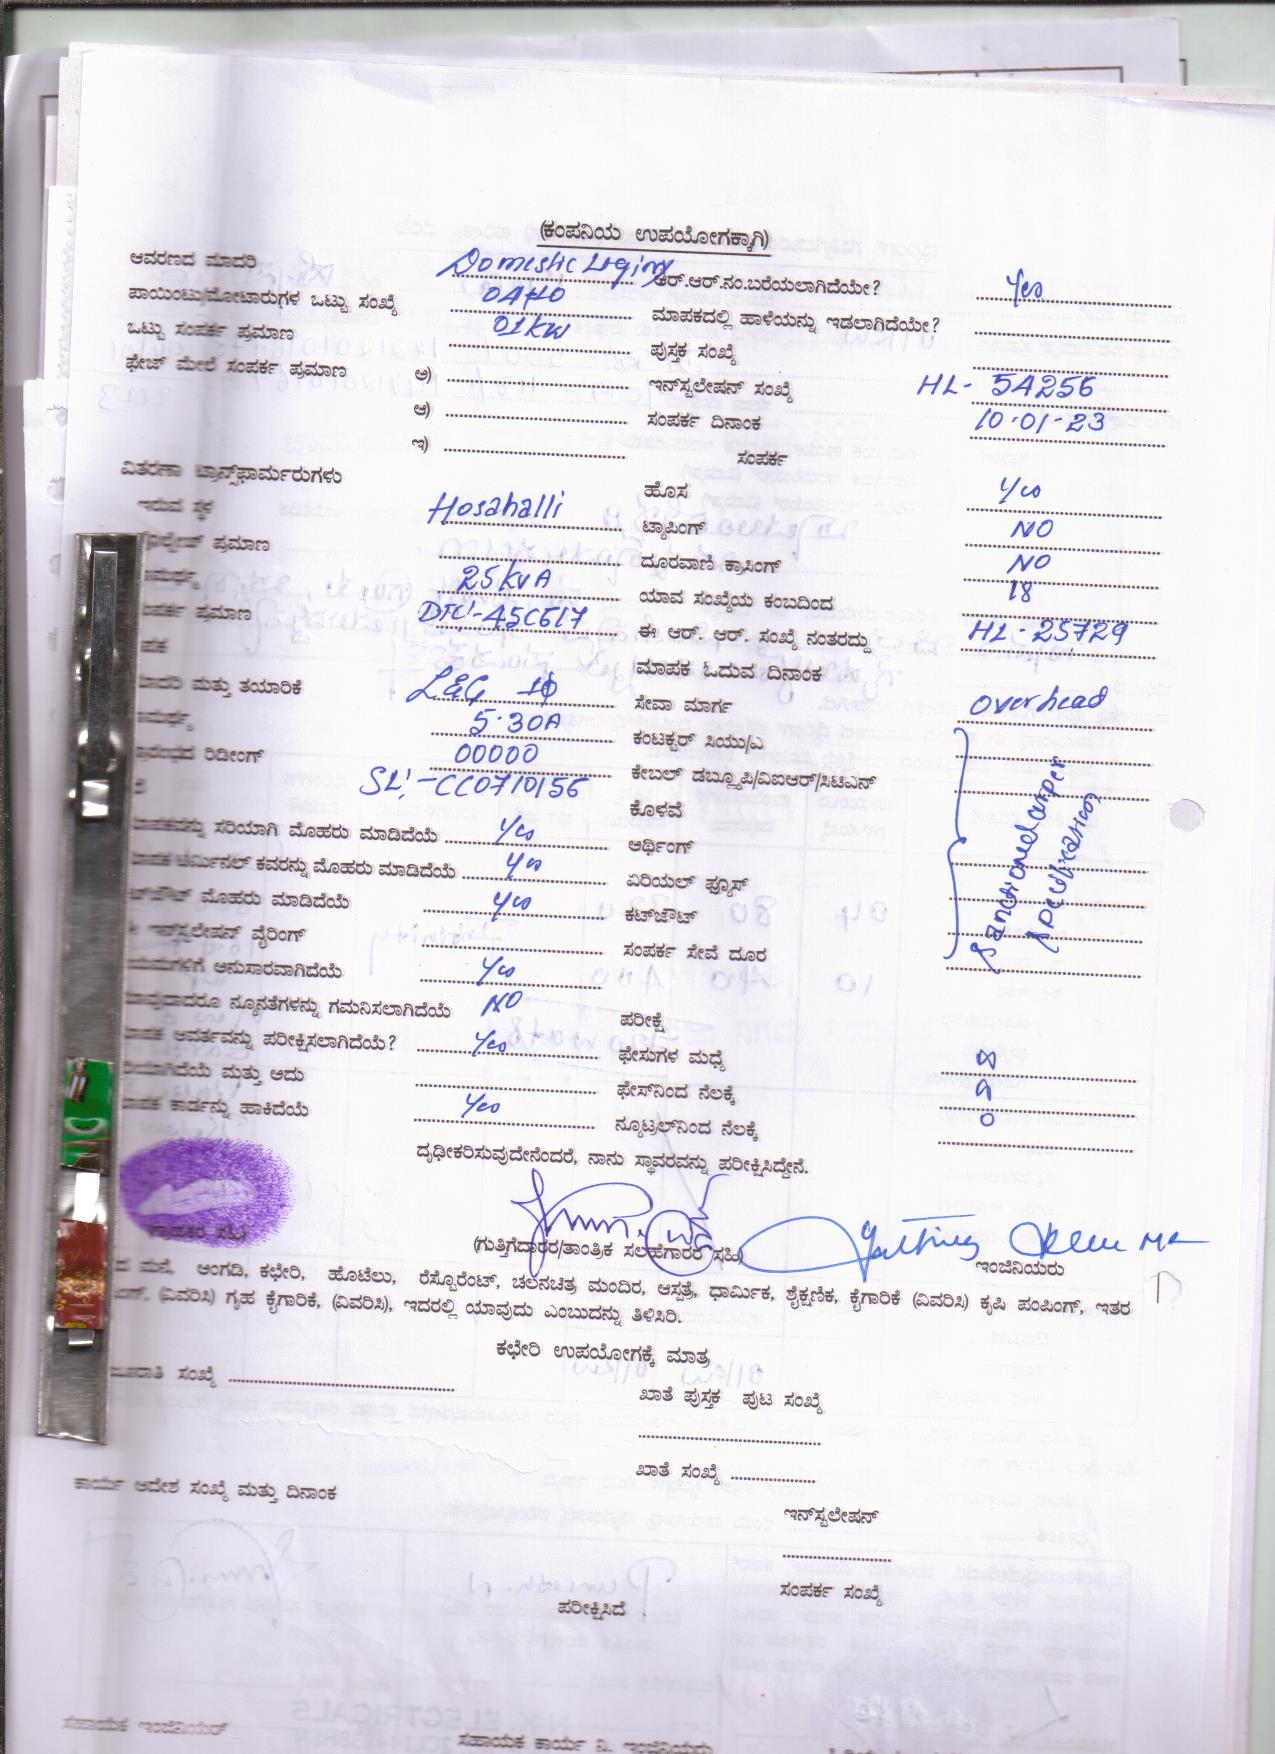 (ಕಂಪನಿಯ ಉಪಯೋಗಕ್ಕಾಗಿ)
ಆವರಣದ ಮಾದರಿ Domestic Liging ಆರ್.ಆರ್.ನಂ.ಬರೆಯಲಾಗಿದೆಯೇ? Yes
ಪಾಯಿಂಟು/ಮೋಟಾರುಗಳ ಒಟ್ಟು ಸಂಖ್ಯೆ ಮಾಪಕದಲ್ಲಿ ಹಾಳೆಯನ್ನು ಇಡಲಾಗಿದೆಯೇ?
ಒಟ್ಟು ಸಂಪರ್ಕ ಪ್ರಮಾಣ 01kw ಪುಸ್ತಕ ಸಂಖ್ಯೆ
ಫೇಜ್ ಮೇಲೆ ಸಂಪರ್ಕ ಪ್ರಮಾಣ ಅ) ಇನ್‌ಸ್ಟಲೇಷನ್ ಸಂಖ್ಯೆ HL- 54256
ಆ) ಸಂಪರ್ಕ ದಿನಾಂಕ 10-01-23
ಇ) ಸಂಪರ್ಕ
ವಿತರಣಾ ಟ್ರಾನ್ಸ್‌ಫಾರ್ಮರುಗಳು
ಇರುವ ಸ್ಥಳ Hosahalli ಹೊಸ Yes
ಪ್ರಮಾಣ ಟ್ಯಾಪಿಂಗ್ NO
25kVA ದೂರವಾಣಿ ಕ್ರಾಸಿಂಗ್ NO
ಪ್ರಮಾಣ DTC:-45C617 ಯಾವ ಸಂಖ್ಯೆಯ ಕಂಬದಿಂದ 18
ಈ ಆರ್. ಆರ್. ಸಂಖ್ಯೆ ನಂತರದ್ದು HL-25729
ಮಾಪಕ ಓದುವ ದಿನಾಂಕ
ಮತ್ತು ತಯಾರಿಕೆ L&G 1Φ ಸೇವಾ ಮಾರ್ಗ Overhead
5-30A ಕಂಟಕ್ಟರ್ ಸಿಯು/ಎ
ರಿಡೀಂಗ್ 00000 ಕೇಬಲ್ ಡಬ್ಲ್ಯೂಪಿ/ವಿಐಆರ್/ಸಿಟಿಎನ್
SL:-CC0710156 ಕೊಳವೆ
ಸರಿಯಾಗಿ ಮೊಹರು ಮಾಡಿದೆಯೆ Yes ಅರ್ಥಿಂಗ್
ಟರ್ಮಿನಲ್ ಕವರನ್ನು ಮೊಹರು ಮಾಡಿದೆಯೆ Yes ಏರಿಯಲ್ ಫ್ಯೂಸ್
ಮೊಹರು ಮಾಡಿದೆಯೆ Yes ಕಟ್‌ಔಟ್
ಇನ್‌ಸ್ಟಲೇಷನ್ ವೈರಿಂಗ್ ಸಂಪರ್ಕ ಸೇವೆ ದೂರ
ಅನುಸಾರವಾಗಿದೆಯೆ Yes
ನ್ಯೂನತೆಗಳನ್ನು ಗಮನಿಸಲಾಗಿದೆಯೆ NO ಪರೀಕ್ಷೆ
ಆವರ್ತವನ್ನು ಪರೀಕ್ಷಿಸಲಾಗಿದೆಯೆ? Yes ಫೇಸುಗಳ ಮಧ್ಯೆ
ಮತ್ತು ಅದು ಫೇಸ್‌ನಿಂದ ನೆಲಕ್ಕೆ
ಕಾರ್ಡನ್ನು ಹಾಕಿದೆಯೆ Yes ನ್ಯೂಟ್ರಲ್‌ನಿಂದ ನೆಲಕ್ಕೆ 0
ದೃಢೀಕರಿಸುವುದೇನೆಂದರೆ, ನಾನು ಸ್ಥಾವರವನ್ನು ಪರೀಕ್ಷಿಸಿದ್ದೇನೆ.
(ಗುತ್ತಿಗೆದಾರರ/ತಾಂತ್ರಿಕ ಸಲಹೆಗಾರರ ಸಹಿ) ಇಂಜಿನಿಯರು
ಮನೆ, ಅಂಗಡಿ, ಕಛೇರಿ, ಹೊಟೆಲು, ರೆಸ್ಟೋರೆಂಟ್, ಚಲನಚಿತ್ರ ಮಂದಿರ, ಆಸ್ಪತ್ರೆ, ಧಾರ್ಮಿಕ, ಶೈಕ್ಷಣಿಕ, ಕೈಗಾರಿಕೆ (ವಿವರಿಸಿ) ಕೃಷಿ ಪಂಪಿಂಗ್, ಇತರ
(ವಿವರಿಸಿ) ಗೃಹ ಕೈಗಾರಿಕೆ, (ವಿವರಿಸಿ), ಇದರಲ್ಲಿ ಯಾವುದು ಎಂಬುದನ್ನು ತಿಳಿಸಿರಿ.
ಕಛೇರಿ ಉಪಯೋಗಕ್ಕೆ ಮಾತ್ರ
ಸಂಖ್ಯೆ ಖಾತೆ ಪುಸ್ತಕ ಪುಟ ಸಂಖ್ಯೆ
ಖಾತೆ ಸಂಖ್ಯೆ
ಕಾರ್ಯ ಆದೇಶ ಸಂಖ್ಯೆ ಮತ್ತು ದಿನಾಂಕ ಇನ್‌ಸ್ಟಲೇಷನ್
ಸಂಪರ್ಕ ಸಂಖ್ಯೆ
ಪರೀಕ್ಷಿಸಿದೆ
ಸಹಾಯಕ ಇಂಜಿನಿಯರ್ ಸಹಾಯಕ ಕಾರ್ಯ ನಿ. ಇಂಜಿನಿಯರು